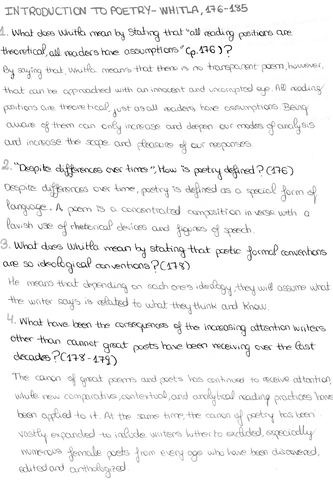 INTRODUCTION TO POETRY - WHITLA, 176-185
1. What does Whitla mean by stating that "all reading positions are
theoretical, all readers have assumptions" (p.176)?
By saying that, Whitla means that there is no transparent poem, however,
that can be approached with an innocent and uncorrupted eye. All reading
positions are theoretical, just as all readers have assumptions. Being
aware of them can only increase and deepen our modes of analysis
and increase the scope and pleasure of our responses.
2. "Despite differences over time", How is poetry defined? (176)
Despite differences over time, poetry is defined as a special form of
language. A poem is a concentrated composition in verse with a
lavish use of rhetorical devices and figures of speech.
3. What does Whitla mean by stating that poetic formal conventions
are so ideological conventions? (178)
He means that depending on each one's ideology, they will assume what
the writer says is related to what they think and know.
4. What have been the consequences of the increasing attention writers
other than cannot great poets have been receiving over the last
decades? (178-179)
The canon of great poems and poets has continued to receive attention,
while new comparative, contextual, and analytical reading practices have
been applied to it. At the same time, the canon of poetry has been
vastly expanded to include writers hitherto excluded, especially
numerous female poets from every age who have been discovered,
edited and anthologized.